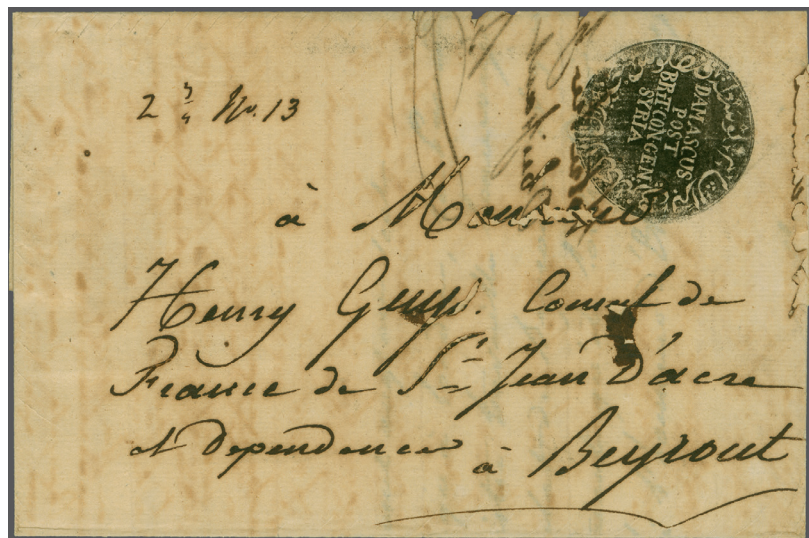 2 3/4 No. 13
DAMASCUS
POST
BRIT CON GEN
SYRIA
à Monsieur
Henry Guys. Consul de
France de St Jean D'acre
et Dependences
à Beyrout